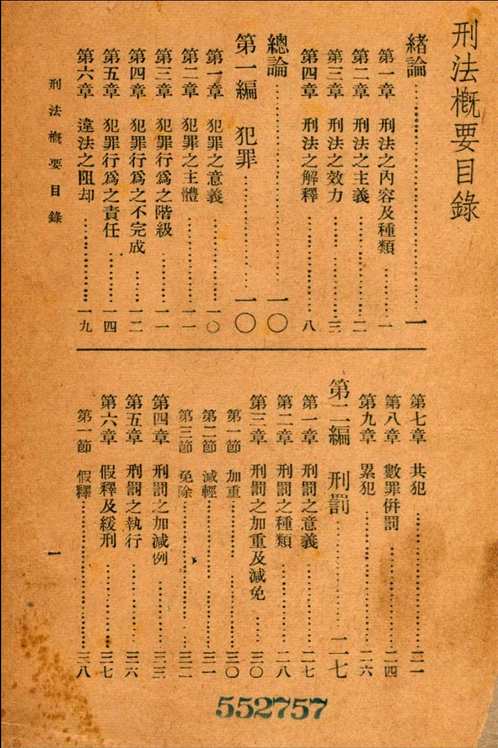 刑法概要目錄
緒論……一
第一章 刑法之內容及種類……一
第二章 刑法之主義……二
第三章 刑法之效力……三
第四章 刑法之解釋……八
總論……一〇
第一編 犯罪……一〇
第一章 犯罪之意義……一〇
第二章 犯罪之主體……一一
第三章 犯罪行爲之階級……一一
第四章 犯罪行爲之不完成……一二
第五章 犯罪行爲之責任……一四
第六章 違法之阻却……一九
第七章 共犯……二一
第八章 數罪併罰……二四
第九章 累犯……二六
第二編 刑罰……二七
第一章 刑罰之意義……二七
第二章 刑罰之種類……二八
第三章 刑罰之加重及減免……三〇
第一節 加重……三〇
第二節 減輕……三一
第三節 免除……三二
第四章 刑罰之加減例……三三
第五章 刑罰之執行……三六
第六章 假釋及緩刑……三七
第一節 假釋……三八
刑法概要目錄
一
552757